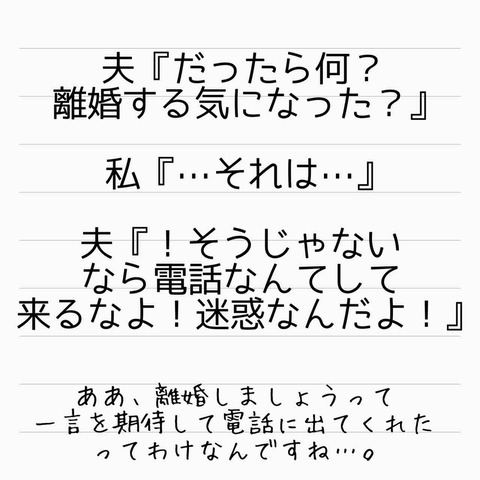 夫『だったら何？
離婚する気になった？』
私『…それは…』
夫『！そうじゃない
なら電話なんてして
来るなよ！迷惑なんだよ！』
ああ、離婚しましょうって
一言を期待して電話に出てくれた
ってわけなんですね…。